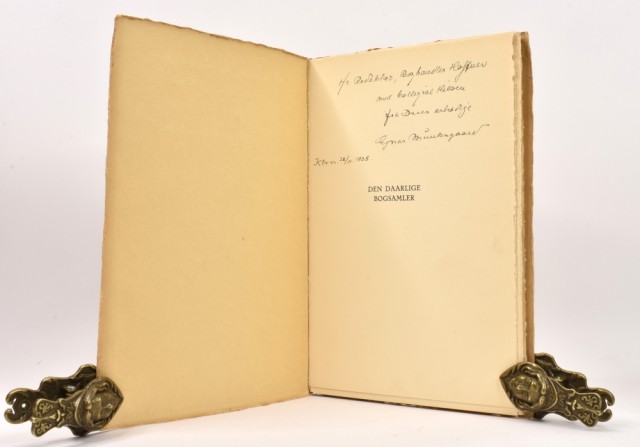 Hr. Redaktør, Boghandler Haffner
med kollegial Hilsen
fra Deres ærbødige
Ejnar Munksgaard
Kbhvn. 1925.
DEN DAARLIGE
BOGSAMLER